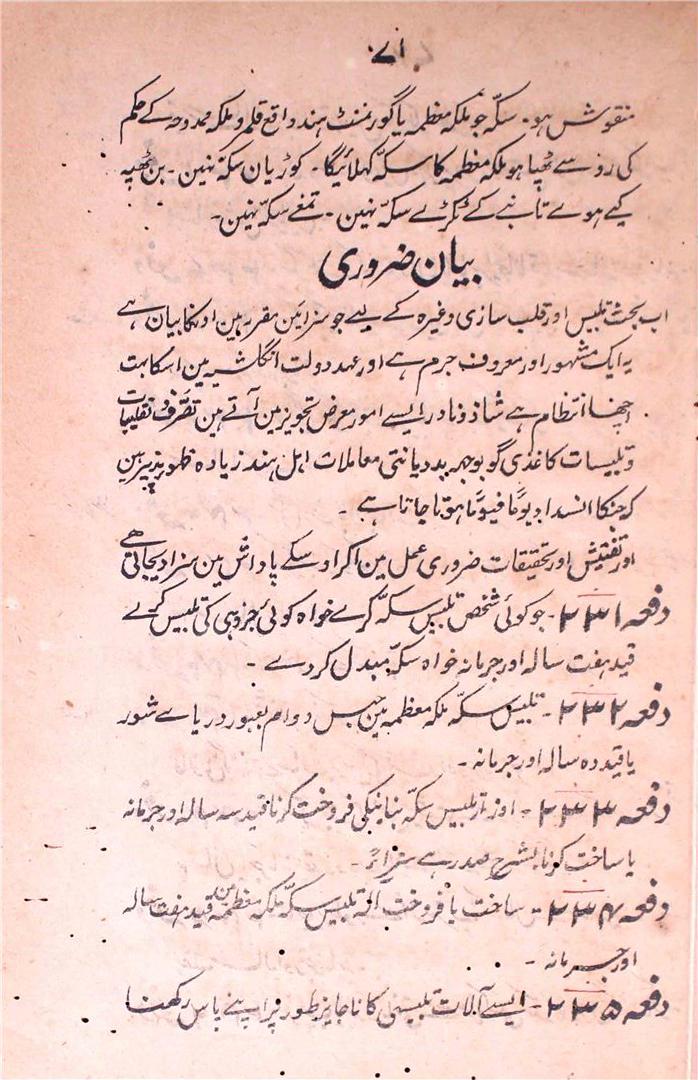 ۷۱
منقوش ہو۔ سکّہ جو ملکہ معظمہ یا گورنمنٹ ہند واقع قلمرو ملکہ ممدوحہ کے حکم
کی رو سے ٹھپا ہو ملکہ معظمہ کا سکہ کہلائیگا۔ کوڑیان سکہ نہین۔ بن ٹھپہ
کیے ہوے تانبے کے ٹکڑے سکّہ نہین۔ تمغے سکہ نہین۔
بیان ضروری
اب بحث تلبیس اور قلب سازی وغیرہ کے لیے جو سزائین مقرر ہین اونکا بیان ہے
یہ ایک مشہور اور معروف جرم ہے اور عہد دولت انگلشیہ مین اسکا بہت
اچھا انتظام ہے شاذ و نادر ایسے امور معرض تجویز مین آتے ہین
و تلبیسات کاغذی گو بوجہ بددیانتی معاملات اہل ہند زیادہ ظہور پذیر ہین
کہ جنکا انسداد یوماً فیوماً ہوتا جاتا ہے۔
اور تفتیش اور تحقیقات ضروری عمل مین آکر اوسکے پاداش مین سزا دیجاتی ہے
دفعہ ۲۳۱۔ جو کوئی شخص تلبیس سکہ کرے خواہ کوئی جزو ہی کی تلبیس کرے
قید ہفت سالہ اور جرمانہ خواہ سکہ مبدل کر دے۔
دفعہ ۲۳۲۔ تلبیس سکّہ ملکہ معظمہ مین حبس دوام بعبور دریاے شور
یا قید دہ سالہ اور جرمانہ۔
دفعہ ۲۳۳۔ اوزار تلبیس سکّہ بنا فروخت کرنا قید سہ سالہ اور جرمانہ
یا ساخت کرنا بشرح صدر ہے
دفعہ ۲۳۴۔ ساخت یا فروخت آلہ تلبیس سکّہ ملکہ معظمہ مین قید ہفت سالہ
اور جرمانہ۔
دفعہ ۲۳۵۔ ایسے آلات تلبیسی کا ناجایز طور پر اپنے پاس رکھنا